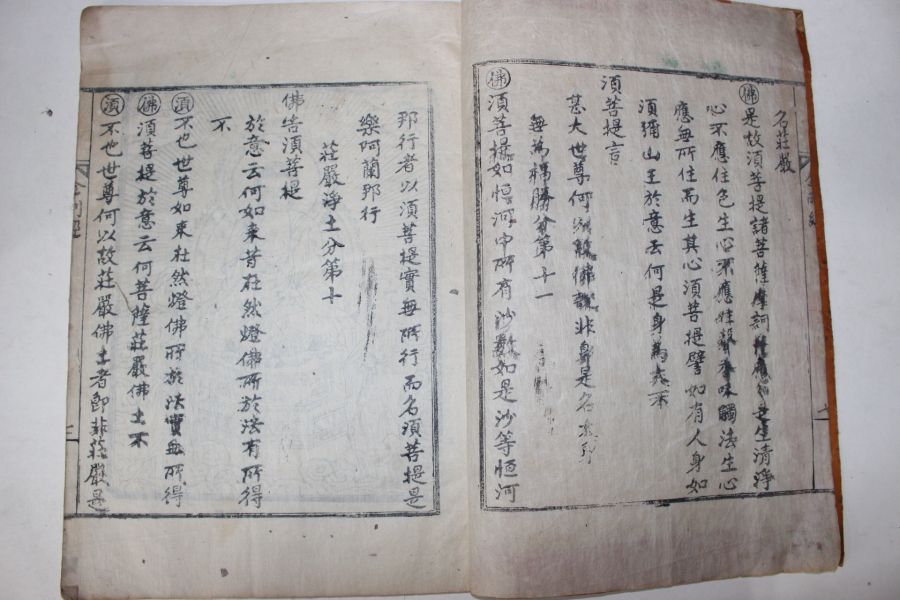 那行者以須菩提實無所行而名須菩提是
樂阿蘭那行
莊嚴淨土分第十
佛告須菩提
於意云何如來昔在然燈佛所於法有所得
不
須不也世尊如來在然燈佛所於法實無所得
佛須菩提於意云何菩薩莊嚴佛土不
須不也世尊何以故莊嚴佛土者卽非莊嚴是
名莊嚴
佛是故須菩提諸菩薩摩訶薩應如是生清淨
心不應住色生心不應住聲香味觸法生心
應無所住而生其心須菩提譬如有人身如
須彌山王於意云何是身為大不
須菩提言
甚大世尊何以故佛說非身是名大身
無為福勝分第十一
佛須菩提如恒河中所有沙數如是沙等恒河